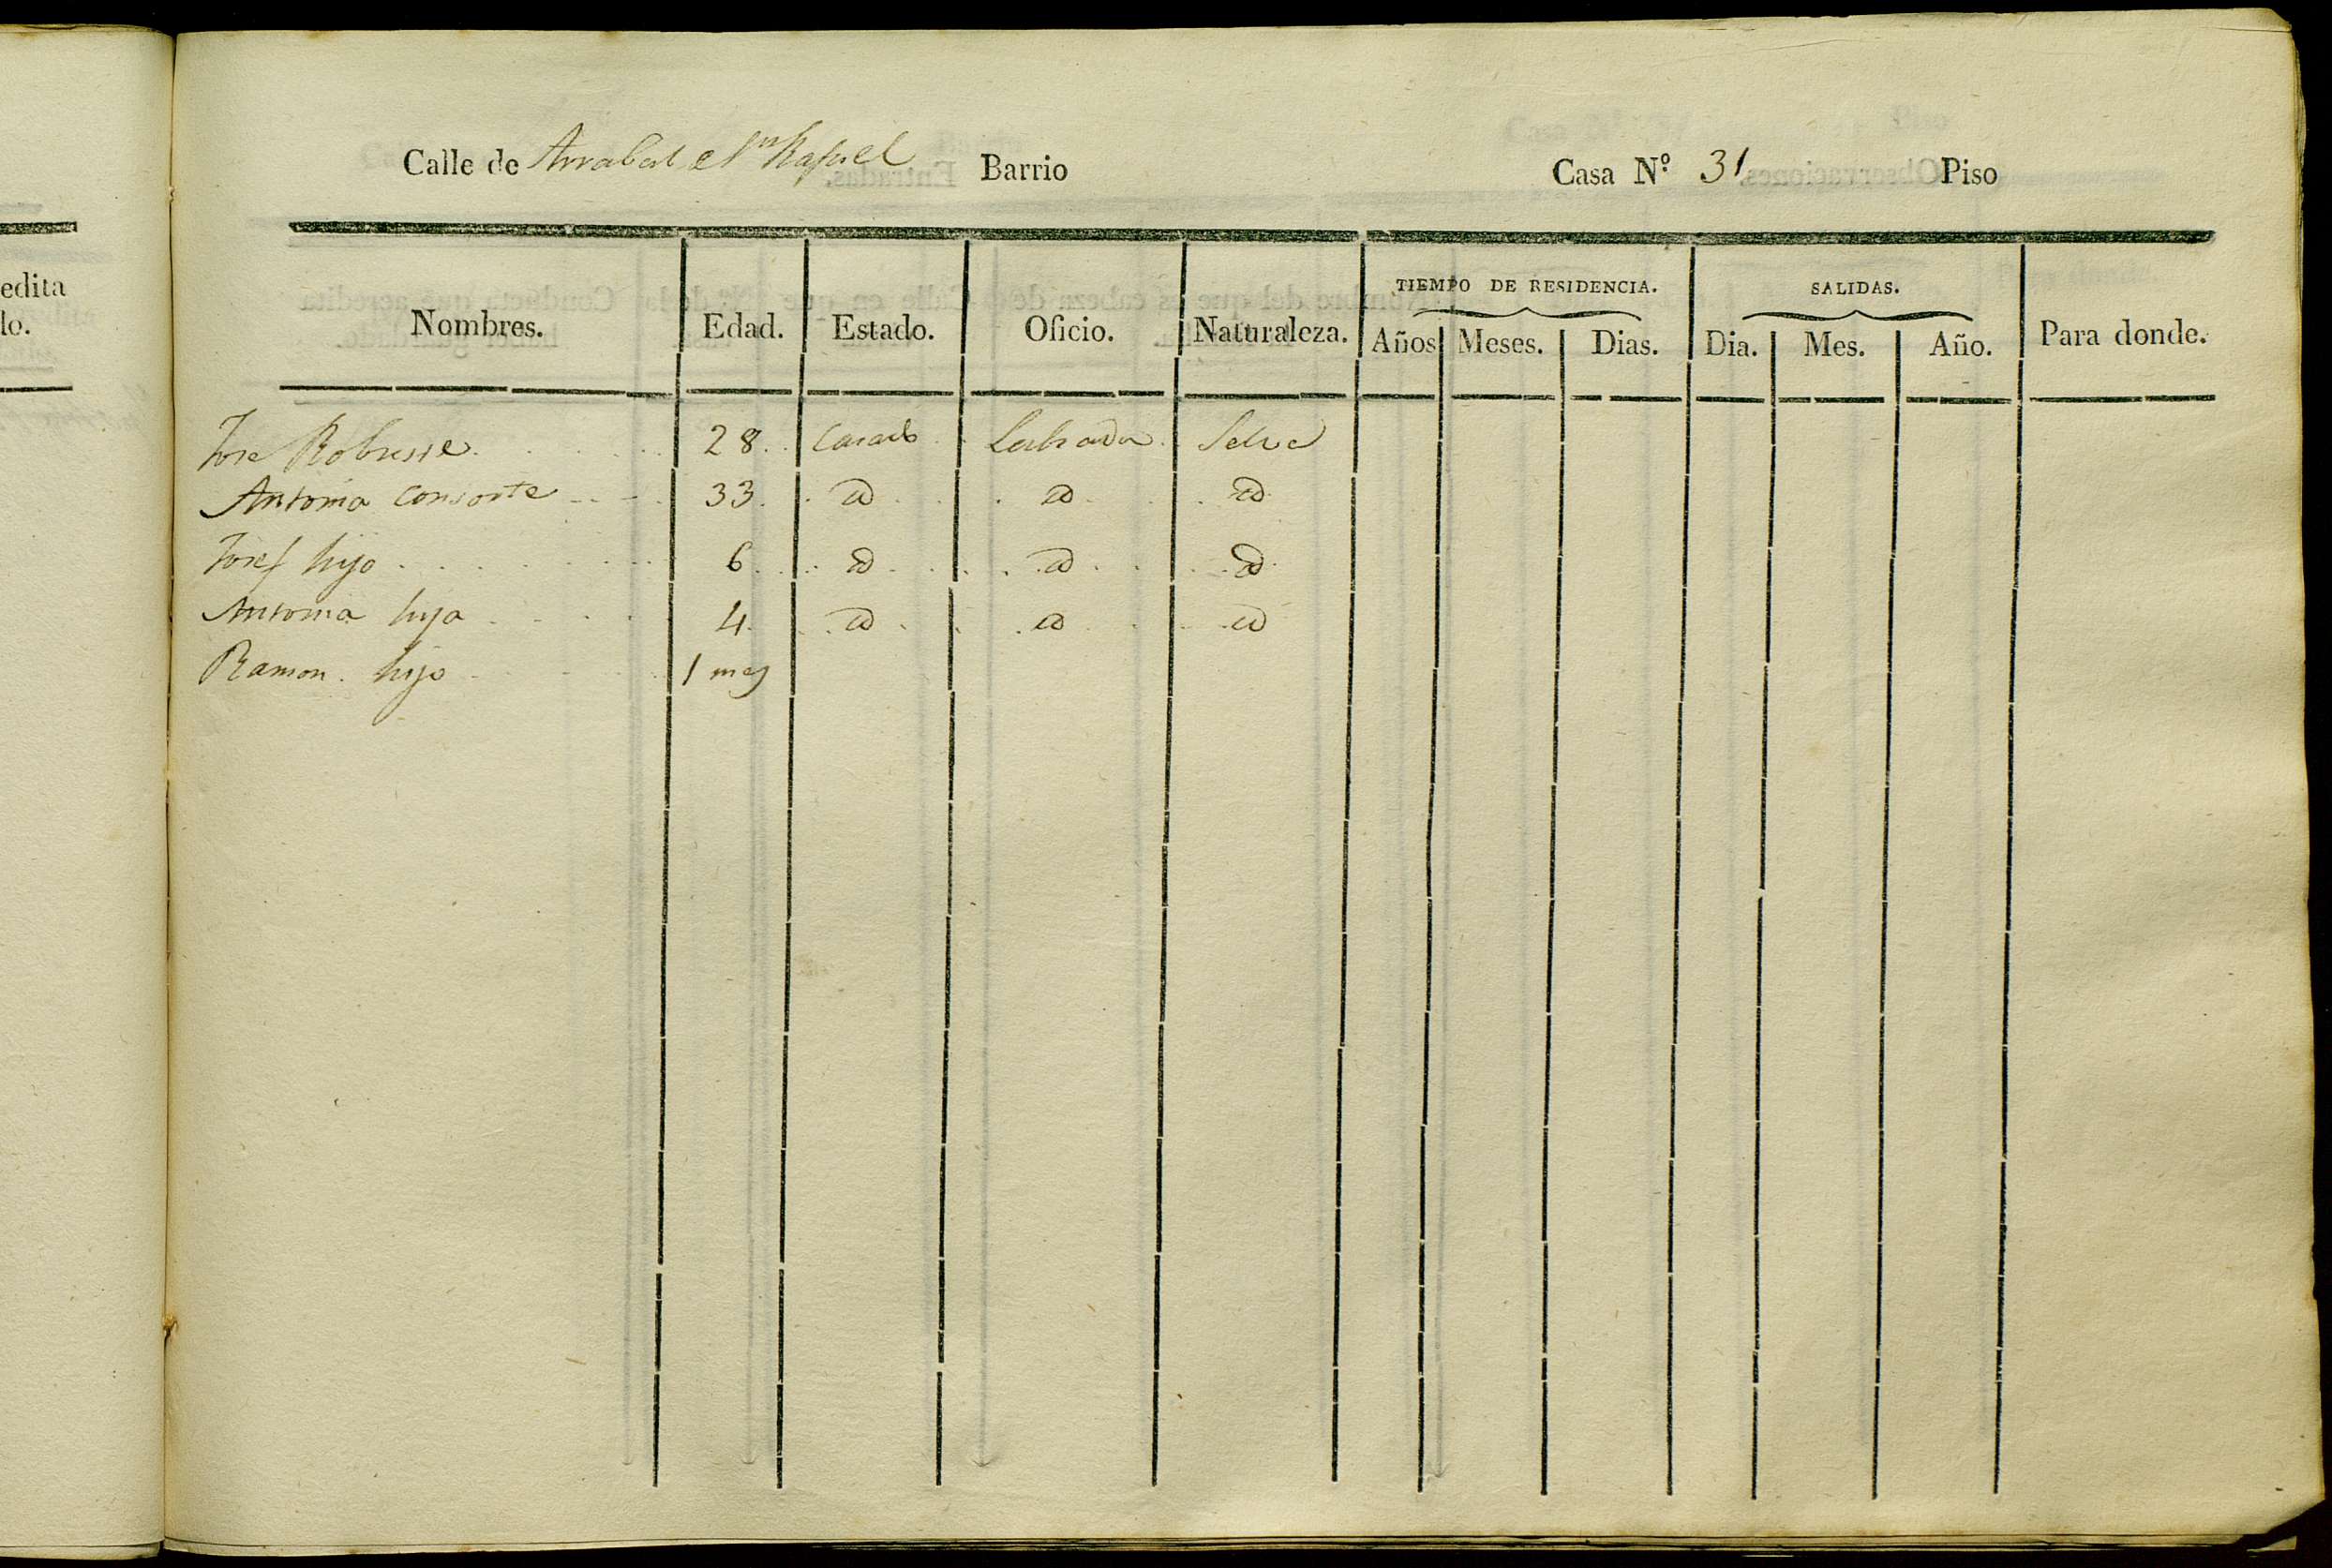 edita
lo.
Calle de Arrabal Sn Rafael Barrio Casa Nº 31 Piso
Nombres. Edad. Estado. Oficio. Naturaleza. TIEMPO DE RESIDENCIA. Años Meses. Dias. SALIDAS. Dia. Mes. Año. Para donde.
Jose 28 Casado Labrador Selva
Antonia consorte 33 id id id
Josef hijo 6 id id id
Antonia hija 4 id id id
Ramon hijo 1 mes